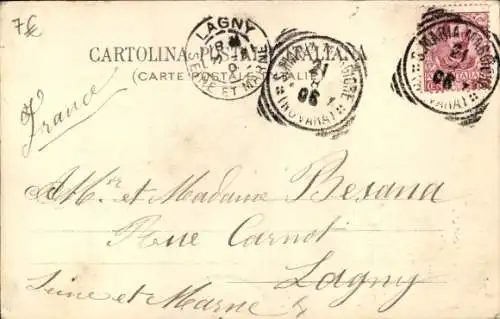 7 €
LAGNY
SEINE ET MARNE
CARTOLINA POSTALE ITALIANA
(CARTE POSTALE D'ITALIE)
S. MARIA MAGGIORE
(NOVARA)
S. MARIA MAGGIORE
(NOVARA)
France
Mr et Madame Besana
Rue Carnot
Lagny
Seine et Marne